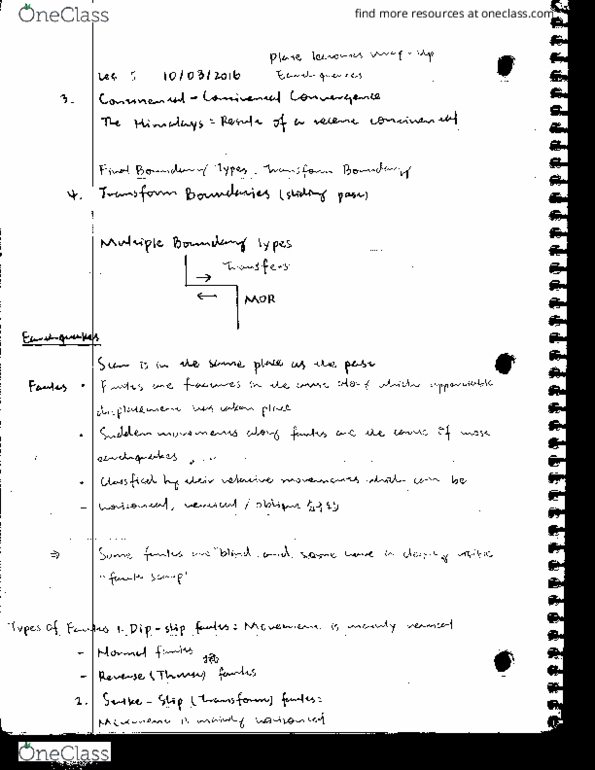 OneClass
find more resources at oneclass.com
Plate tectonics wrap-up
Lec 5 10/03/2016 Earthquakes
3. Continental-Continental Convergence
The Himalays = Result of a recent continental
Final Boundary Types. Transform Boundary
4. Transform Boundaries (sliding past)
Multiple Boundary types
Transfers
MOR
Earthquakes
is in the same place as the past
Faults • Faults are fractures in the crust along which appreciable
displacement has taken place
• Sudden movements along faults are the cause of most
earthquakes
• Classified by their relative movements which can be
- horizontal, vertical / oblique
⇒ Some faults are "blind and some have a clearly visible
"fault scarp"
Types of Faults 1. Dip-slip faults: Movement is mainly vertical
- Normal faults
- Reverse (Thrust) faults
2. Strike-Slip (Transform) faults:
Movement is mainly horizontal
OneClass